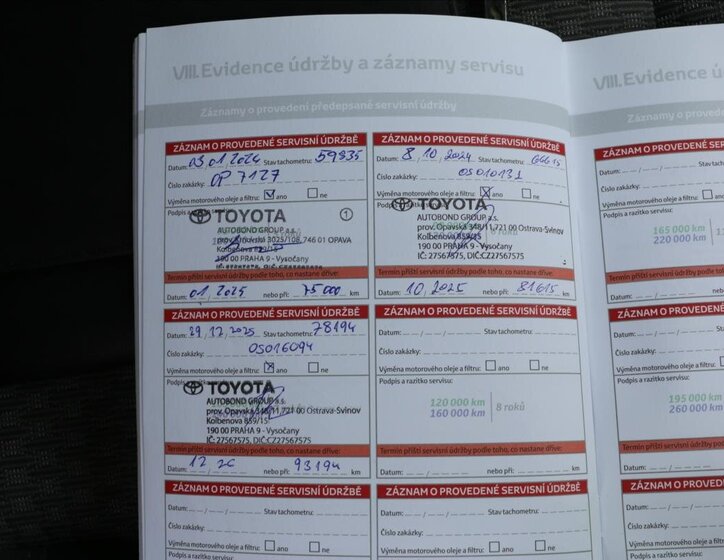 VIII. Evidence údržby a záznamy servisu
Záznamy o provedení předepsané servisní údržby
ZÁZNAM O PROVEDENÉ SERVISNÍ ÚDRŽBĚ
Datum: 03.01.2024 Stav tachometru: 59835
Číslo zakázky: OP 7127
Výměna motorového oleje a filtru: ano ne
Podpis a
TOYOTA 1
AUTOBOND GROUP a.s.
3025/108, 746 01 OPAVA
Kolbenova 859/15
190 00 PRAHA 9 - Vysočany
Termín příští servisní údržby podle toho, co nastane dříve:
Datum: 01.2025 nebo při: 75000 km
ZÁZNAM O PROVEDENÉ SERVISNÍ ÚDRŽBĚ
Datum: 8.10.2024 Stav tachometru: 66615
Číslo zakázky: OS010131
Výměna motorového oleje a filtru: ano ne
Podpis a razítko
TOYOTA
AUTOBOND GROUP a.s.
prov. Opavská 348/11,721 00 Ostrava-Svinov
Kolbenova 859/15
190 00 PRAHA 9 - Vysočany
IČ: 27567575, DIČ:CZ27567575
Termín příští servisní údržby podle toho, co nastane dříve:
Datum: 10.2025 nebo při: 81615 km
ZÁZNAM O PROVEDENÉ SERVISNÍ ÚDRŽBĚ
Datum: 29.12.2025 Stav tachometru: 78194
Číslo zakázky: OS016094
Výměna motorového oleje a filtru: ano ne
Podpis
TOYOTA
AUTOBOND GROUP a.s.
prov. Opavská 348/11,721 00 Ostrava-Svinov
Kolbenova 859/15
190 00 PRAHA 9 - Vysočany
IČ: 27567575, DIČ:CZ27567575
Termín příští servisní údržby podle toho, co nastane dříve:
Datum: 12 26 nebo při: 93194 km
ZÁZNAM O PROVEDENÉ SERVISNÍ ÚDRŽBĚ
Datum: Stav tachometru:
Číslo zakázky:
Výměna motorového oleje a filtru: ano ne
Podpis a razítko servisu:
120 000 km
160 000 km
8 roků
Termín příští servisní údržby podle toho, co nastane dříve:
Datum: nebo při: km
ZÁZNAM O PROVEDENÉ SERVISNÍ ÚDRŽBĚ
Datum: Stav tachometru:
Číslo zakázky:
Výměna motorového oleje a filtru: ano ne
Podpis a razítko servisu:
ZÁZNAM O PROVEDENÉ SERVISNÍ ÚDRŽBĚ
Datum: Stav tachometru:
Číslo zakázky:
Výměna motorového oleje a filtru: ano ne
Podpis a razítko servisu:
VIII. Evidence ú
Záznamy o proved
ZÁZNAM O PROVEDENÉ S
Datum:
Číslo zakázky:
Výměna motorového oleje a filtru:
Podpis a razítko servisu:
165 000 km
220 000 km
Termín příští servisní údržby podle
Datum:
ZÁZNAM O PROVEDENÉ
Datum:
Číslo zakázky:
Výměna motorového oleje a filtru:
Podpis a razítko servisu:
195 000 km
260 000 km
Termín příští servisní údržby podl
Datum:
ZÁZNAM O PROVEDENÉ
Datum:
Číslo zakázky:
Výměna motorového oleje a filtru: